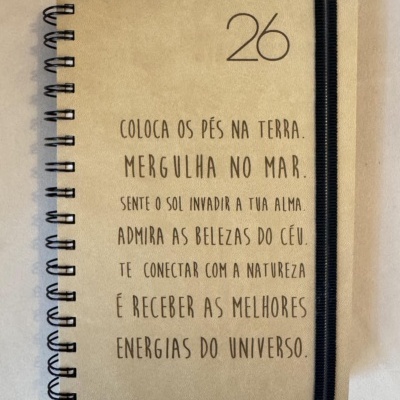 26
COLOCA OS PÉS NA TERRA.
MERGULHA NO MAR.
SENTE O SOL INVADIR A TUA ALMA.
ADMIRA AS BELEZAS DO CÉU.
TE CONECTAR COM A NATUREZA
É RECEBER AS MELHORES
ENERGIAS DO UNIVERSO.